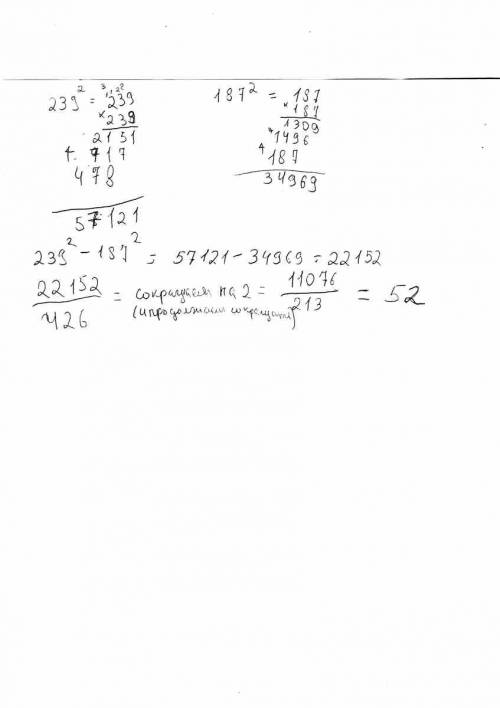 239² = 239
× 239
2151
+ 717
478
57121
187² = 187
× 187
1309
+ 1496
+ 187
34969
239² - 187² = 57121 - 34969 = 22152
22152/426 = сокращаем на 2 = 11076/213 = 52
(и продолжаем сокращать)